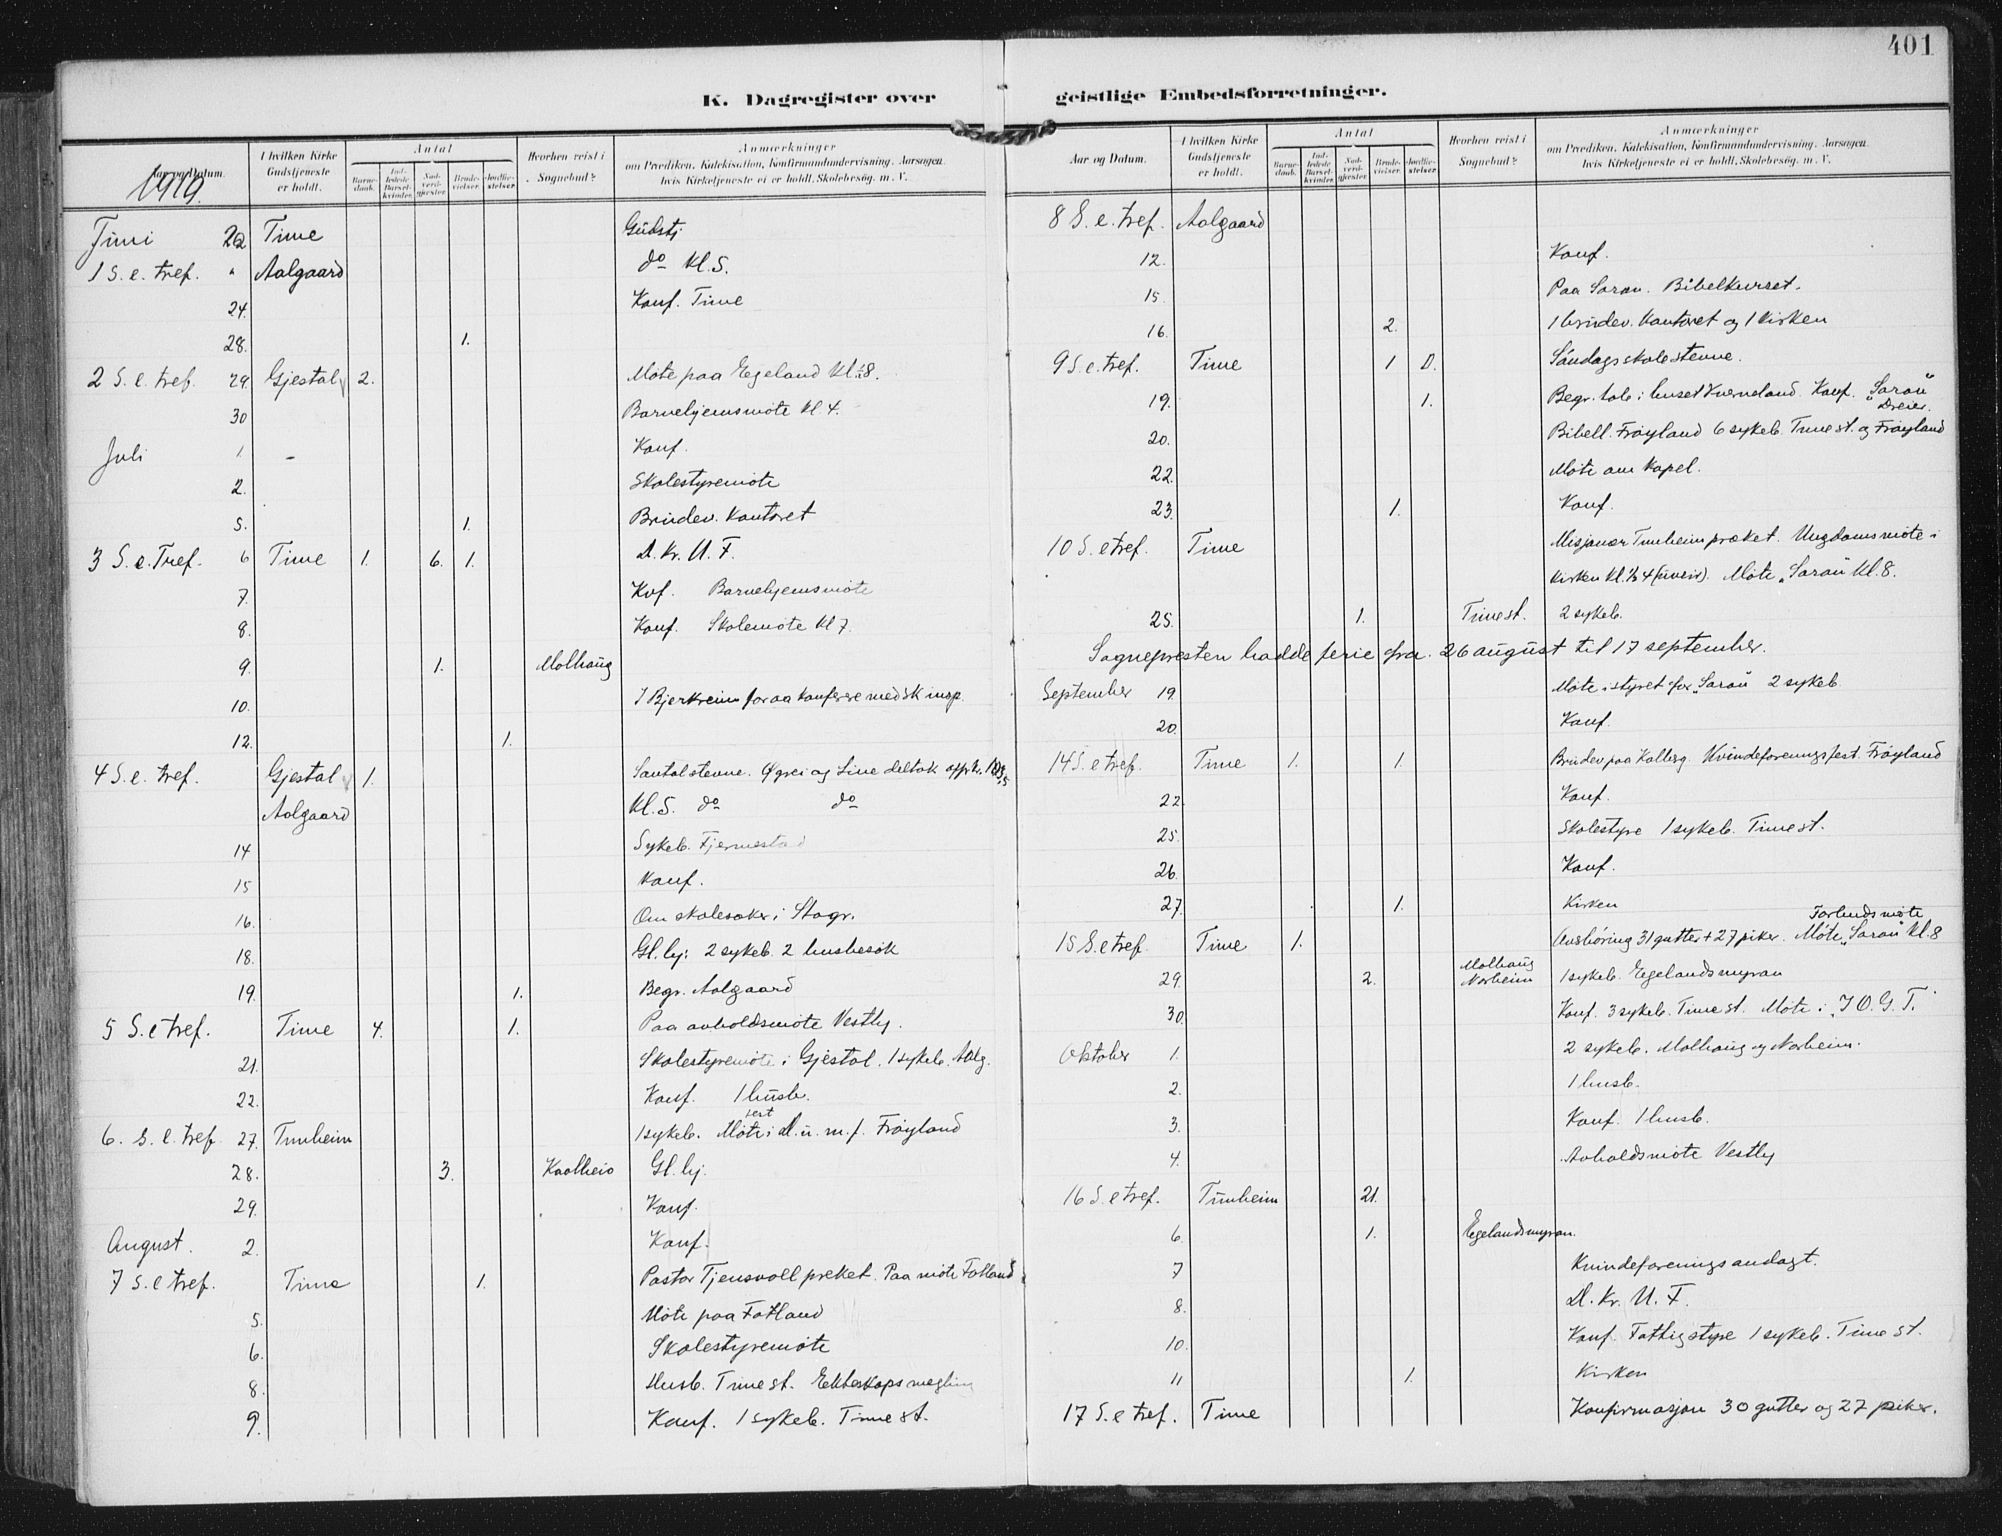 401
K. Dagregister over geistlige Embedsforretninger.
Aar og Datum. I hvilken Kirke Gudstjeneste er holdt. Antal Barnedaab. Indledede Barselkvinder. Nadverdgjæster. Brudevielser. Jordfæstelser. Hvorhen reist i Sognebud? Anmærkninger om Prædiken, Katekisation, Konfirmandundervisning, Aarsagen hvis Kirketjeneste ei er holdt, Skolebesøg. m. V.
1919.
Juni 22 Time Gudstj
1 S. e. tref. " Aalgaard do Kl. 5.
24. Konf. Time
28. 1.
2 S. e. tref. 29. Gjestal 2. Møte paa Egeland Kl. 8.
30 Barnehjemsmøte Kl 4.
Juli 1 - Konf.
2. Skolestyremøte
5. 1. Brudev. Kontoret
3 S. e. Tref. 6 Time 1. 6. 1. D. Kr. U. F.
7. Kof. Barnehjemsmøte
8. Konf. Skolemøte Kl 7.
9. 1. Molhaug
10. I Bjerkreim for aa konferere med sk insp.
12. 1.
4 S. e. tref. Gjestal 1. Santalstevne. Øgrei og Line deltok
Aalgaard Kl. 5. do do
14 Sykeb. Fjermestad
15 Konf.
16. Om skolesaker i Stagr.
18. Gl. hj: 2 sykeb. 2 husbesøk
19. 1. Begr. Aalgaard
5 S. e tref. Time 4. 1. Paa avholdsmøte Vestly.
21. Skolestyremøte i Gjestal. 1 sykeb. Aalg.
22. Konf. 1 husb.
6. S. e. tref. 27. Tunheim 1 sykeb. Møte i D. u. m. f. Frøyland
28. 3. Kaalheio Gl. hj.
29. Konf.
August. 2. Konf.
7 S. e tref. Time 1. Pastor Tjensvoll preket. Paa møte Fotland
5. Møte paa Fotland
6. Skolestyremøte
8. Husb. Time st. Ekteskapsmegling
9. Konf. 1 sykeb. Time st.
Aar og Datum. I hvilken Kirke Gudstjeneste er holdt. Antal Barnedaab. Indledede Barselkvinder. Nadverdgjæster. Brudevielser. Jordfæstelser. Hvorhen reist i Sognebud? Anmærkninger om Prædiken, Katekisation, Konfirmandundervisning, Aarsagen hvis Kirketjeneste ei er holdt, Skolebesøg. m. V.
8 S. e. tref. Aalgaard
12. Konf.
15. Paa Saron. Bibelkurset.
16. 2. 1 brudev. Kontoret og 1 Kirken
9 S. e. tref. Time 1 0. Søndagsskolestevne.
19. 1. Begr. tale i huset Kverneland. Konf. "Saron"
20. Bibell. Frøyland 6 sykeb. Time st. og Frøyland
22. Møte om Kapel.
23. 1. Konf.
10 S. e tref. Time Misjonær Tunheim præket. Ungdomsmøte i
Kirken Kl. ½ 4 Møte "Saron" Kl. 8.
25. 1. Time st. 2 sykeb.
Sognepresten hadde ferie fra 26 august til 17 september.
September 19. Møte i styret for "Saron" 2 sykeb.
20. Konf.
14 S. e tref. Time 1. 1. Brudev paa Kalberg. Kvindeforeningsfest. Frøyland
22. Konf.
25. Skolestyre 1 sykeb. Time st.
26. Konf.
27. 1. Kirken
15 S. e tref. Time 1. Overhøring 31 gutter + 27 piker. Forbudsmøte Møte "Saron" Kl. 8
29. 2. Molhaug Norheim 1 sykeb. Egelandsmyran
30. Konf. 3 sykeb. Time st. Møte i "I O. G. T."
Oktober 1. 2 sykeb. Molhaug og Norheim.
2. 1 husb.
3. Konf. 1 husb.
4. Avholdsmøte Vestly
16 S. e tref. Tunheim 21.
6. 1. Egelandsmyran.
7 Kvindeforeningsandagt.
8. D. Kr. U. F.
10. Konf. Fattigstyre 1 sykeb. Time st.
11 1. Kirken
17 S. e tref. Time Konfirmasjon 30 gutter og 27 piker.